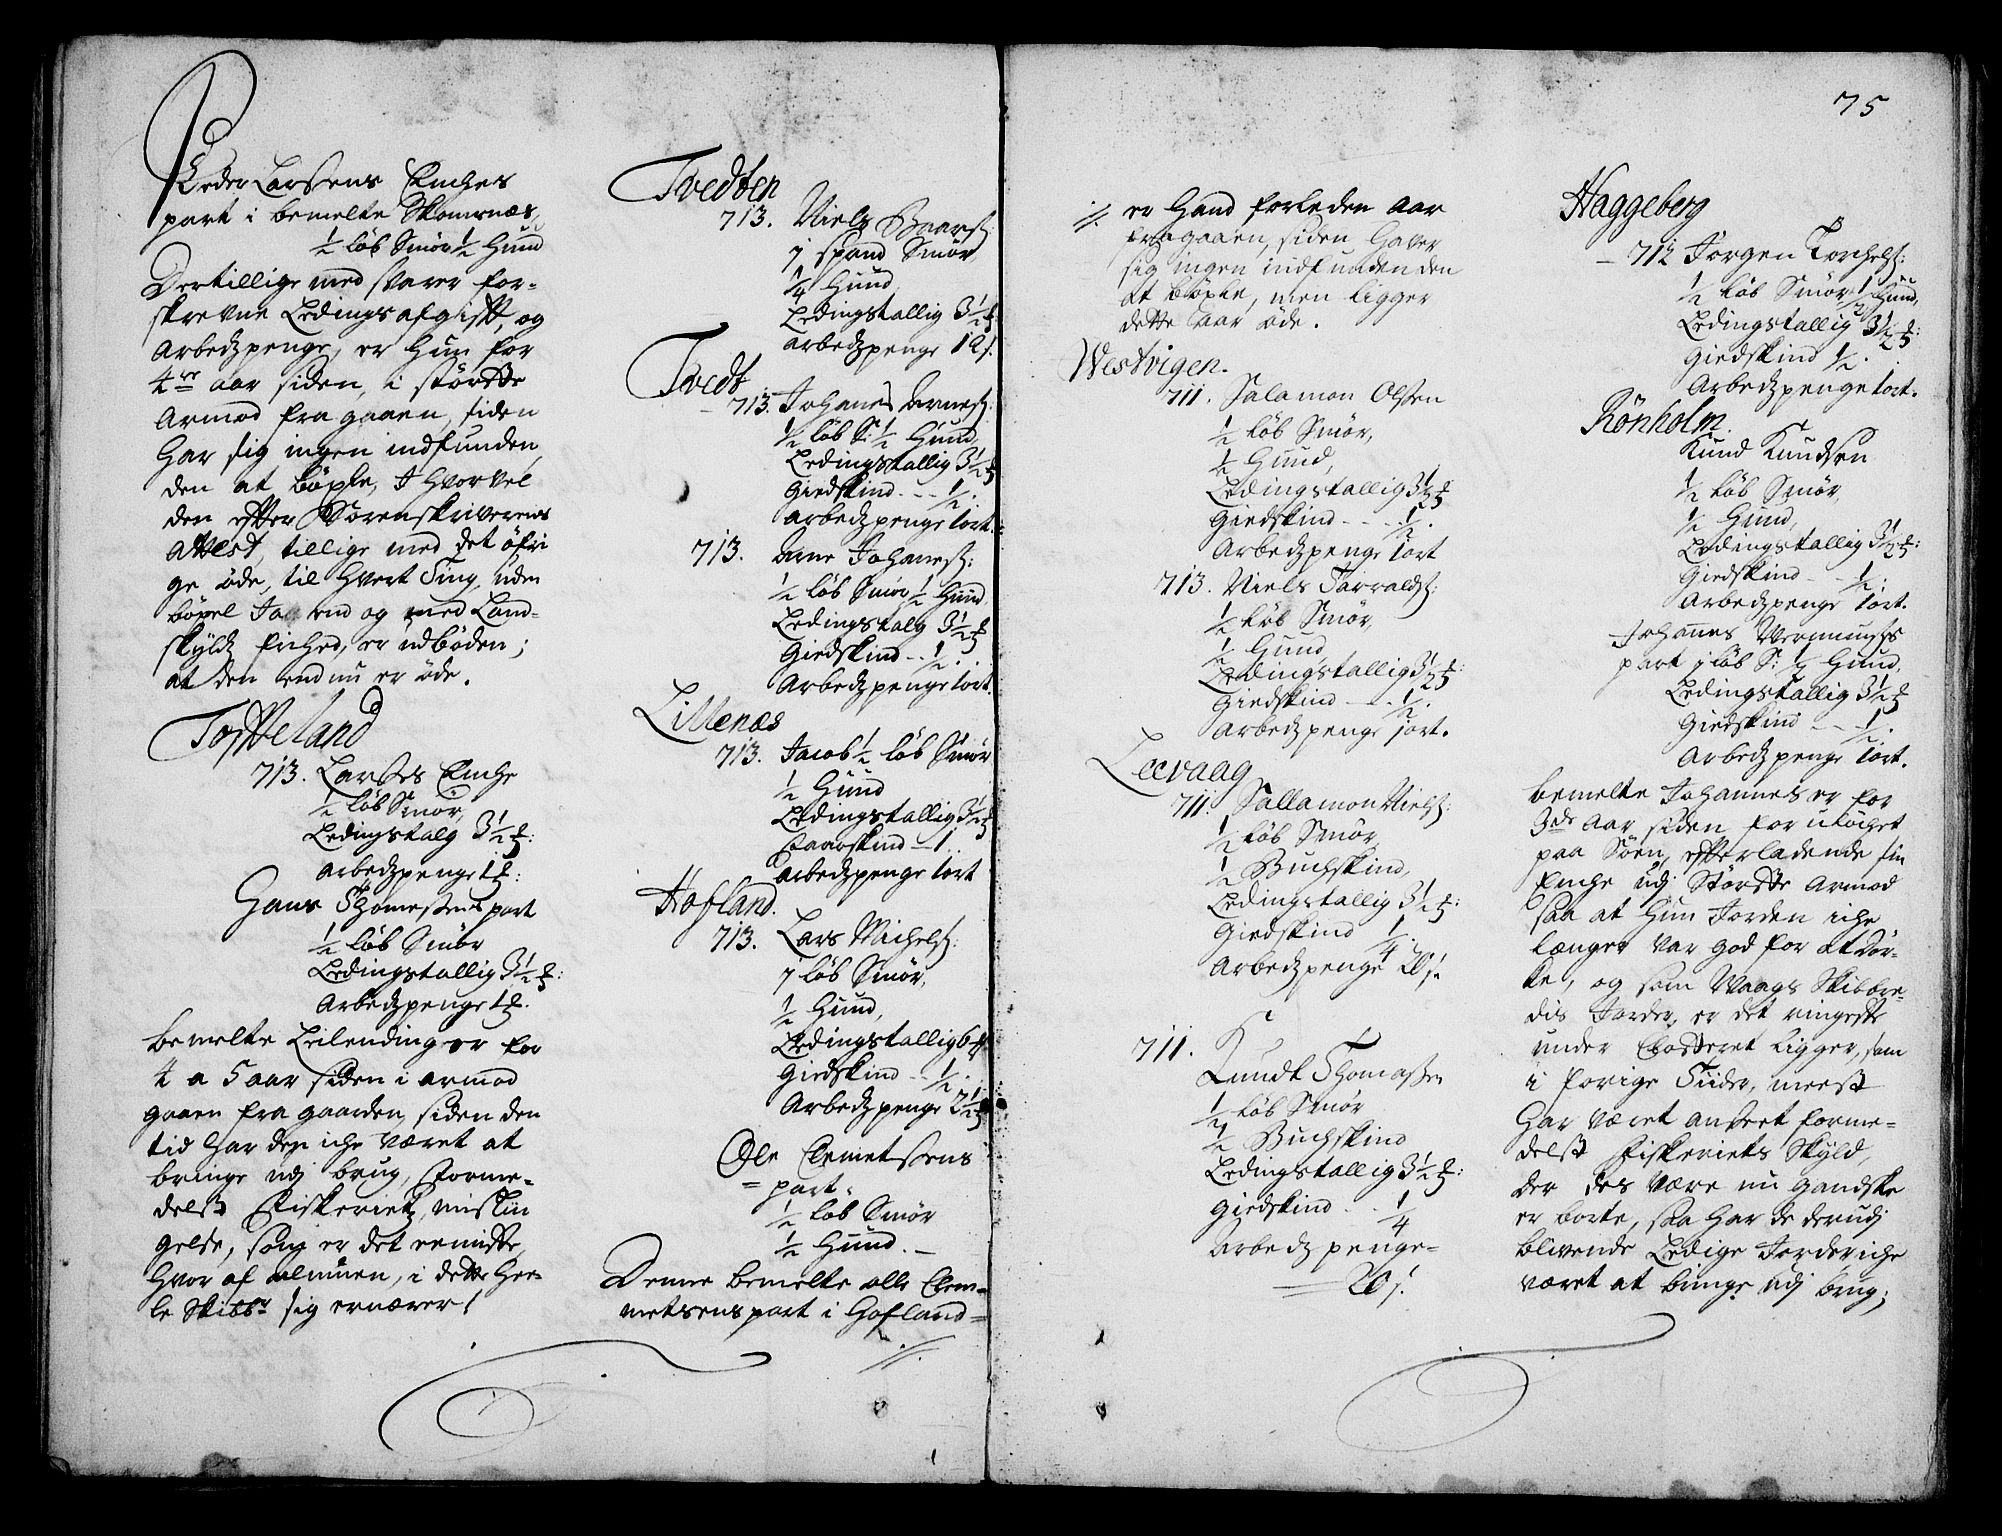 Peder Larsens Enches
part i bemelte Skomsnæs,
½ løb Smør ½ Hund
Dertillige med svarer for-
skrevne Ledings afgifft, og
Arbedzpenge, er Hun for
4re aar siden, i største
Armod fra gaaen, siden
har sig ingen indfunden
den at bøxle, Ihvorvel
den efter Sorenskriverens
Attest, tillige med det øfri
ge øde, til hvert Ting, uden
bøxel end og med Land-
skyldz frihed, er udbøden;
at den endnu er øde.
Tofteland
713. Larses Enche
½ løb Smør,
Ledingstalg 3½
arbedzpenge 1
Hans Thomessens part
½ løb Smør
Ledingstallig 3½
Arbedzpenge 1
bemelte Leilending er for
4 a 5 aar siden i armod
gaaen fra gaarden, siden den
tid har den iche været at
bringe udj brug, forme-
delst Fiskerietz mislin
gelse, som er det eeniste,
hvor af almuen, i dette hee-
le Skibbr sig ernærer!
Tvedten
713. Niels Baars:
1 spand Smør
¼ Hund,
Ledingstallig 3½
arbedzpenge 12 s.
Tvedt
713. Johanes Arnes:
½ løb S: ½ Hund,
Ledingstallig 3½
Giedskind - - ½.
Arbedzpenge 1 ort.
713. Arne Johanes:
½ løb Smør ½ Hund,
Ledingstalg 3½
Giedskind - - ½.
Arbedzpenge 1 ort.
Lillenæs
713. Jacob ½ løb Smør
½ Hund
Ledingstallig 3½
Faareskind - 1.
Arbedzpenge 1 ort
Hofland.
713. Lars Michels:
1 løb Smør,
½ Hund,
Ledingstallig 6
Giedskind - - ½.
Arbedzpenge 2½
Ole Clemetsens
= part.
½ løb Smør
½ Hund. -
Denne bemelte olle Clem=
metsens part i Hofland=
·//·
75
·//· er Hand forleden aar
fragaaen, siden haver
sig ingen indfunden den
at bøxle, men ligger
dette aar øde.
Westvigen.
711. Salamon Olsen
½ løb Smør,
½ Hund,
Ledingstallig 3½
Giedskind - - - ½.
Arbedzpenge 1 ort
713. Niels Tarralds:
½ løb Smør,
½ Hund
Ledingstallig 3½
Giedskind - - ½.
Arbedzpenge 1 ort.
Leevaag
711. Sallamon Niels:
½ løb Smør
½ Buchskind,
Ledingstallig 3½
Giedskind ¼.
Arbedzpenge 20 s.
711. Knudt Thomassen
½ løb Smør
½ Buchskind
Ledingstallig 3½
Giedskind - - ¼
Arbedz penge=
= 20 s.
Haggeberg
- 712 Jørgen Torchels:
½ løb Smør ½ Hund,
Ledingstallig 3½
Giedskind ½.
Arbedzpenge 1 ort.
Rønholm.
Knud Knudsen
½ løb Smør,
½ Hund,
Ledingstallig 3½
Giedskind - - ½.
Arbedzpenge 1 ort.
Johannes
part 1 løb S: ½ Hund,
Ledingstallig 3½
Giedskind - - ½.
Arbedzpenge 1 ort.
bemelte Johannes er for
3de aar siden foruløchet
paa Søen, efterladende sin
Enche udj Største Armod
saa at Hun Jorden iche
længer var god for at dør-
ke, og som Waags Skibbre-
dis Jorder, er det ringeste
under Closteret ligger, som
i forige Tiider, meest
har været anseet forme=
delst Fiskeriets Skyld,
der des være nu gandske
er borte, saa har de derudj
blivende Ledige Jorder iche
været at bringe udj brug;